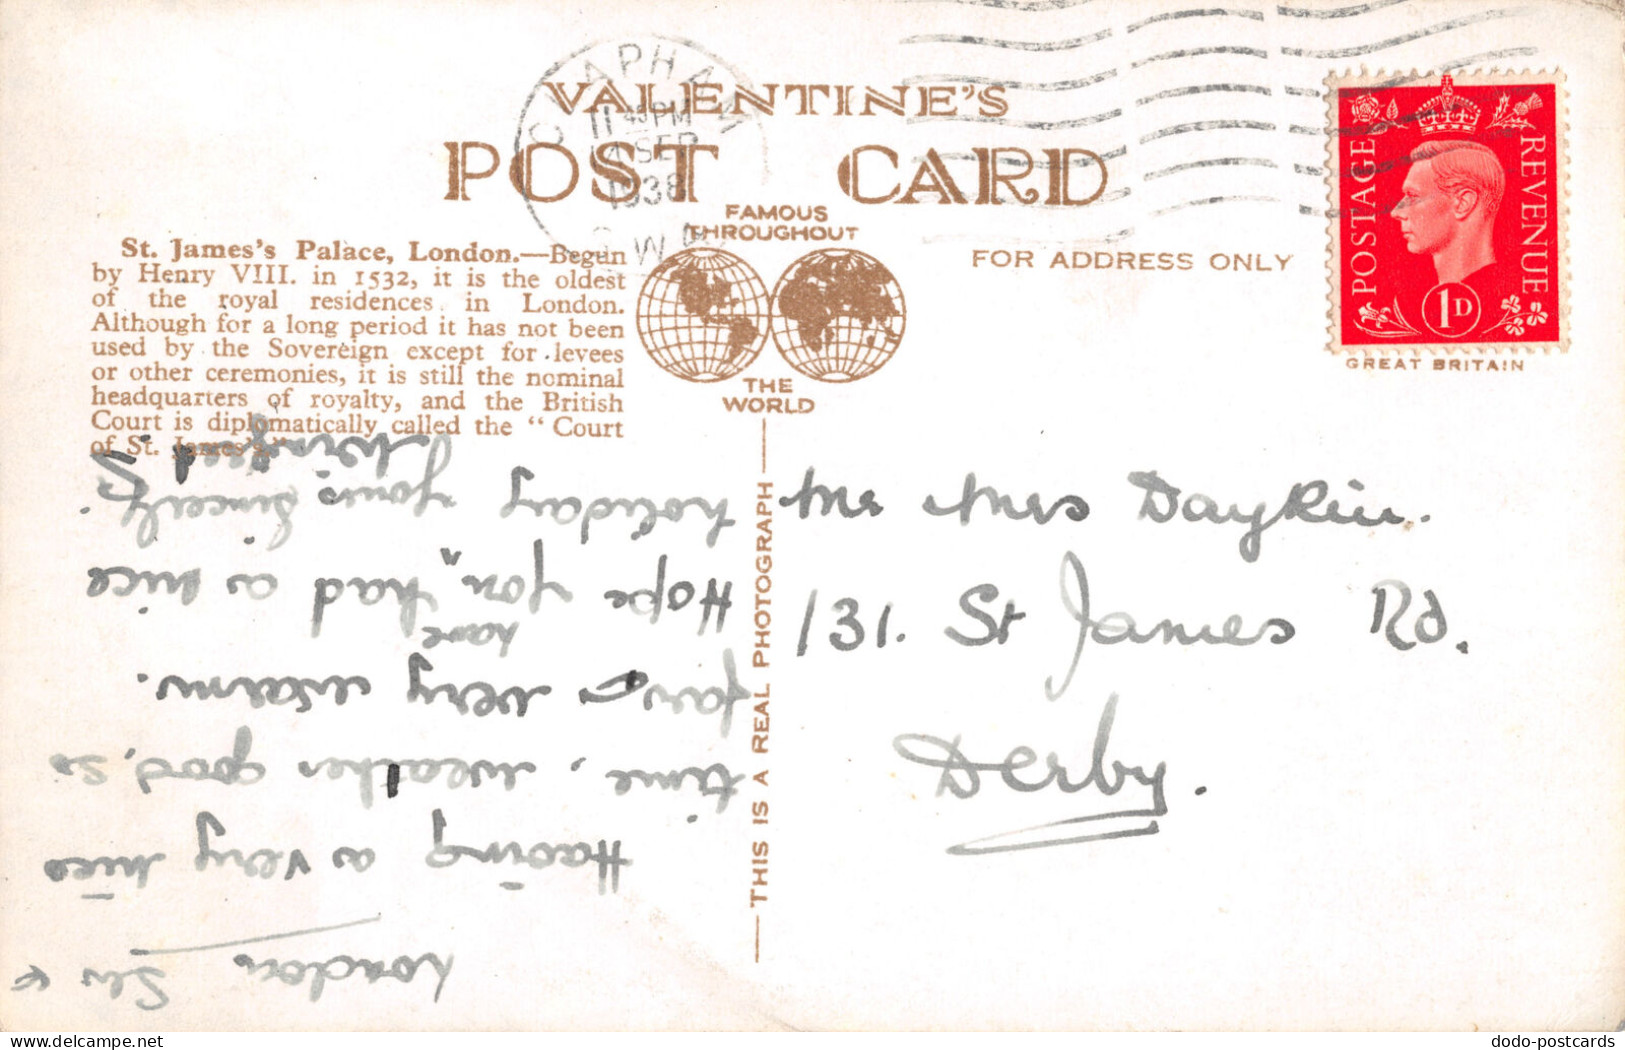 VALENTINE'S
POST CARD
FAMOUS
THROUGHOUT
THE
WORLD
FOR ADDRESS ONLY
CLAPHAM
11 45 PM
SEP
1938
S.W.4
POSTAGE
REVENUE
1D
GREAT BRITAIN
St. James's Palace, London.—Begun
by Henry VIII. in 1532, it is the oldest
of the royal residences in London.
Although for a long period it has not been
used by the Sovereign except for levees
or other ceremonies, it is still the nominal
headquarters of royalty, and the British
Court is diplomatically called the "Court
of St. James's."
THIS IS A REAL PHOTOGRAPH
Mr Mrs Daykin.
131. St James Rd.
Derby.
London SW 4
Having a very nice
time, weather good, so
far very warm.
have
Hope you " had a nice
holiday yours sincerely,
Winifred
dodo-postcards